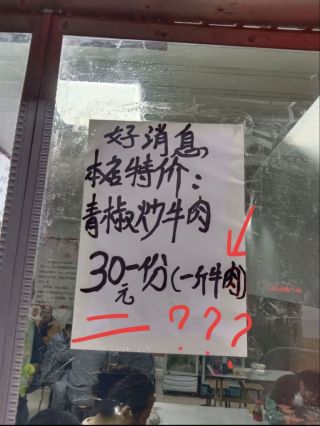 好消息
本店特价：
青椒炒牛肉
30元一份(一斤牛肉)
？？？